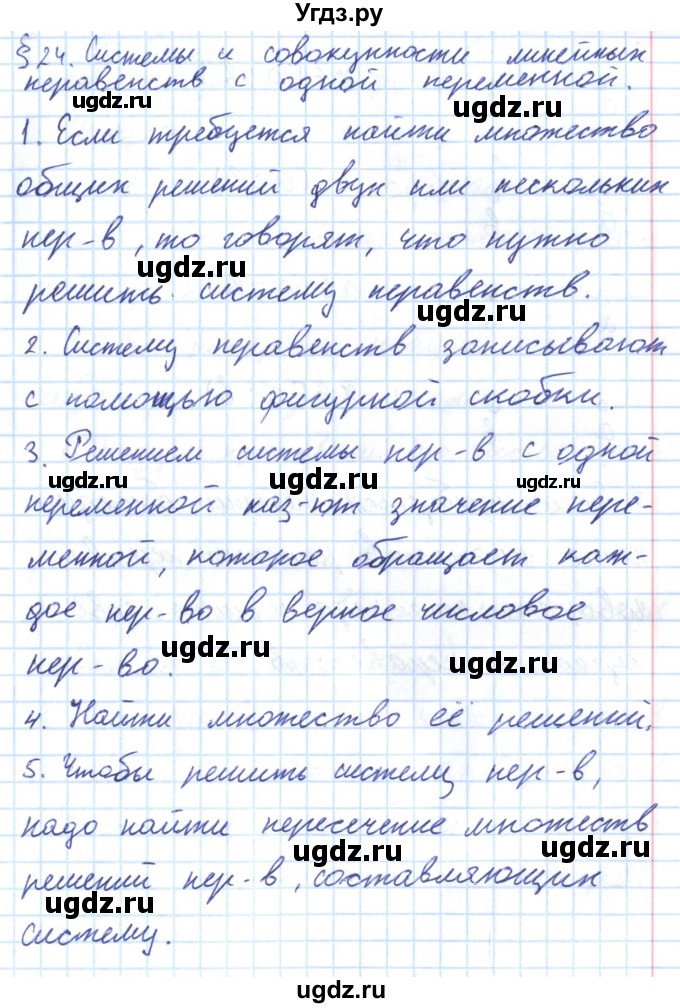 Угдз.ру
§ 24. Системы и совокупности линейных
неравенств с одной переменной.
ugdz.ru ugdz.ru
1. Если требуется найти множество
общих решений двух или нескольких
ugdz.ru ugdz.ru
нер-в, то говорят, что нужно
ugdz.ru
решить систему неравенств.
ugdz.ru
2. Систему неравенств записывают
ugdz.ru
с помощью фигурной скобки.
3. Решением системы нер-в с одной
ugdz.ru ugdz.ru
переменной наз-ют значение пере-
менной, которое обращает каж-
ugdz.ru
дое нер-во в верное числовое
ugdz.ru
нер-во.
ugdz.ru
4. Найти множество её решений.
5. Чтобы решить систему нер-в,
ugdz.ru
надо найти пересечение множеств
ugdz.ru
решений нер-в, составляющих
ugdz.ru ugdz.ru
систему.
ugdz.ru